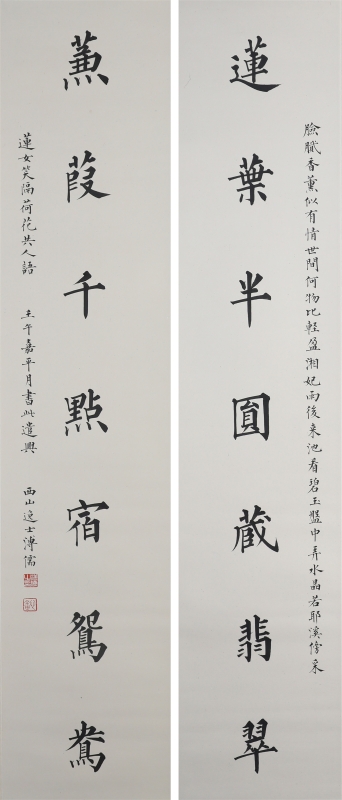 臉膩香薰似有情世間何物比輕盈湘妃雨後來池看碧玉盤中弄水晶若耶溪傍采
蓮葉半圓藏翡翠
蒹葭千點宿鴛鴦
蓮女笑隔荷花共人語 壬午嘉平月書此遣興 西山逸士溥儒